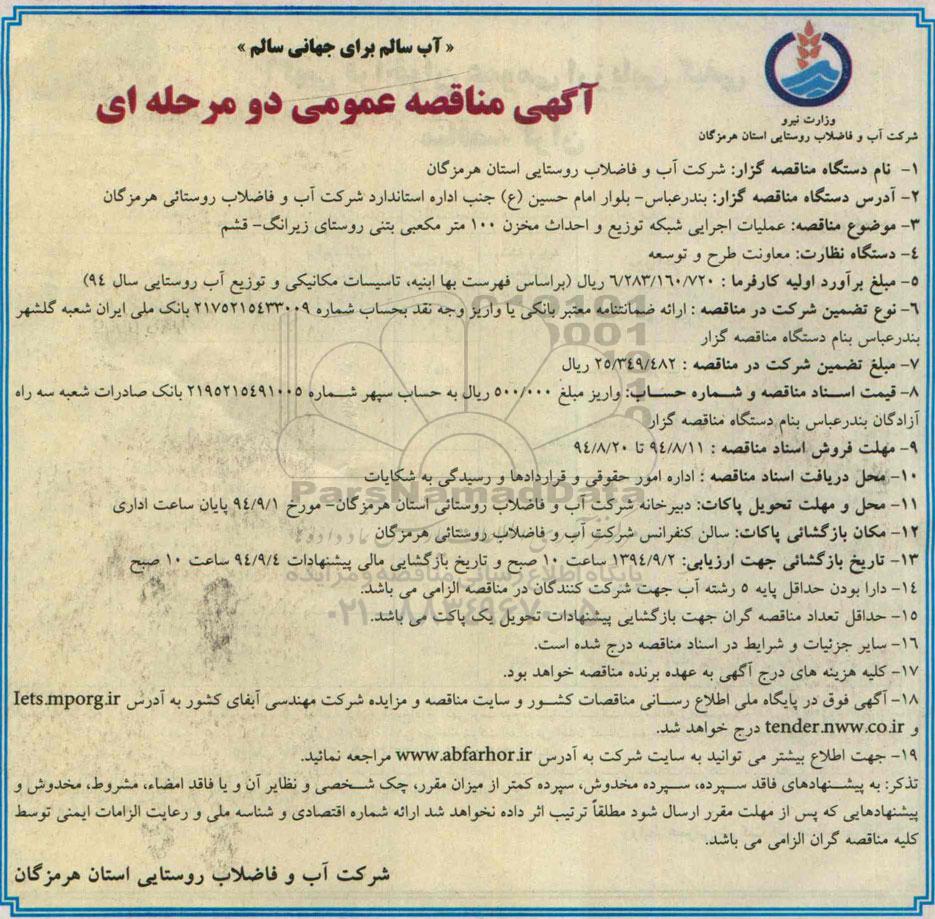 « آب سالم برای جهانی سالم »
آگهی مناقصه عمومی دو مرحله ای
وزارت نیرو
شرکت آب و فاضلاب روستایی استان هرمزگان
۱- نام دستگاه مناقصه گزار: شرکت آب و فاضلاب روستایی استان هرمزگان
۲- آدرس دستگاه مناقصه گزار: بندرعباس- بلوار امام حسین (ع) جنب اداره استاندارد شرکت آب و فاضلاب روستائی هرمزگان
۳- موضوع مناقصه: عملیات اجرایی شبکه توزیع و احداث مخزن ۱۰۰ متر مکعبی بتنی روستای زیرانگ- قشم
۴- دستگاه نظارت: معاونت طرح و توسعه
۵- مبلغ برآورد اولیه کارفرما : ۶/۲۸۳/۱۶۰/۷۲۰ ریال (براساس فهرست بها ابنیه، تاسیسات مکانیکی و توزیع آب روستایی سال ۹۴)
۶- نوع تضمین شرکت در مناقصه : ارائه ضمانتنامه معتبر بانکی یا واریز وجه نقد بحساب شماره ۲۱۷۵۲۱۵۴۳۳۰۰۹ بانک ملی ایران شعبه گلشهر
بندرعباس بنام دستگاه مناقصه گزار
۷- مبلغ تضمین شرکت در مناقصه : ۲۵/۳۴۹/۴۸۲ ریال
۸- قیمت اسناد مناقصه و شماره حساب: واریز مبلغ ۵۰۰/۰۰۰ ریال به حساب سپهر شماره ۲۱۹۵۲۱۵۴۹۱۰۰۵ بانک صادرات شعبه سه راه
آزادگان بندرعباس بنام دستگاه مناقصه گزار
۹- مهلت فروش اسناد مناقصه : ۹۴/۸/۱۱ تا ۹۴/۸/۲۰
۱۰- محل دریافت اسناد مناقصه : اداره امور حقوقی و قراردادها و رسیدگی به شکایات
۱۱- محل و مهلت تحویل پاکات: دبیرخانه شرکت آب و فاضلاب روستائی استان هرمزگان- مورخ ۹۴/۹/۱ پایان ساعت اداری
۱۲- مکان بازگشائی پاکات: سالن کنفرانس شرکت آب و فاضلاب روستائی هرمزگان
۱۳- تاریخ بازگشائی جهت ارزیابی: ۱۳۹۴/۹/۲ ساعت ۱۰ صبح و تاریخ بازگشایی مالی پیشنهادات ۹۴/۹/۴ ساعت ۱۰ صبح
۱۴- دارا بودن حداقل پایه ۵ رشته آب جهت شرکت کنندگان در مناقصه الزامی می باشد.
۱۵- حداقل تعداد مناقصه گران جهت بازگشایی پیشنهادات تحویل یک پاکت می باشد.
۱۶- سایر جزئیات و شرایط در اسناد مناقصه درج شده است.
۱۷- کلیه هزینه های درج آگهی به عهده برنده مناقصه خواهد بود.
۱۸- آگهی فوق در پایگاه ملی اطلاع رسانی مناقصات کشور و سایت مناقصه و مزایده شرکت مهندسی آبفای کشور به آدرس Iets.mporg.ir
و tender.nww.co.ir درج خواهد شد.
۱۹- جهت اطلاع بیشتر می توانید به سایت شرکت به آدرس www.abfarhor.ir مراجعه نمائید.
تذکر: به پیشنهادهای فاقد سپرده، سپرده مخدوش، سپرده کمتر از میزان مقرر، چک شخصی و نظایر آن و یا فاقد امضاء، مشروط، مخدوش و
پیشنهادهایی که پس از مهلت مقرر ارسال شود مطلقاً ترتیب اثر داده نخواهد شد ارائه شماره اقتصادی و شناسه ملی و رعایت الزامات ایمنی توسط
کلیه مناقصه گران الزامی می باشد.
شرکت آب و فاضلاب روستایی استان هرمزگان
ParsNamadData